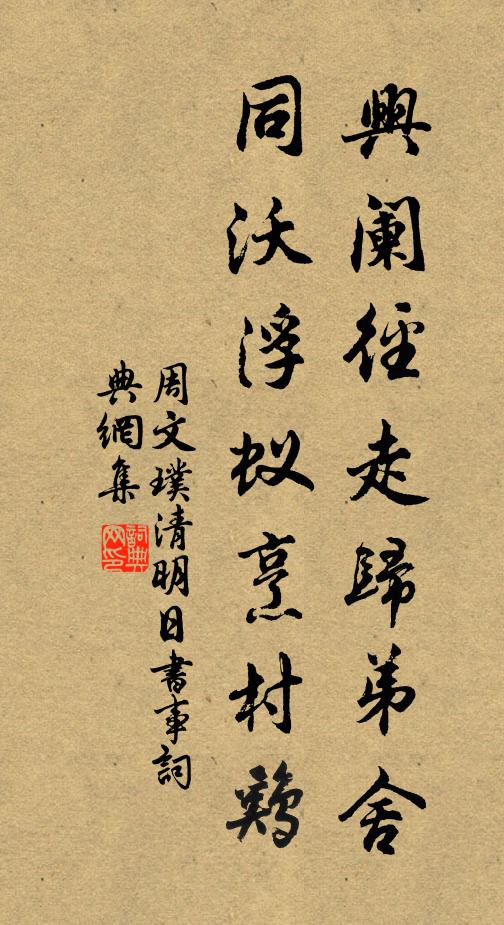 興阑徑走歸弟舍
同沃浮蚁烹村鷄
周文璞清明日書事詞
典網集
詞典网印